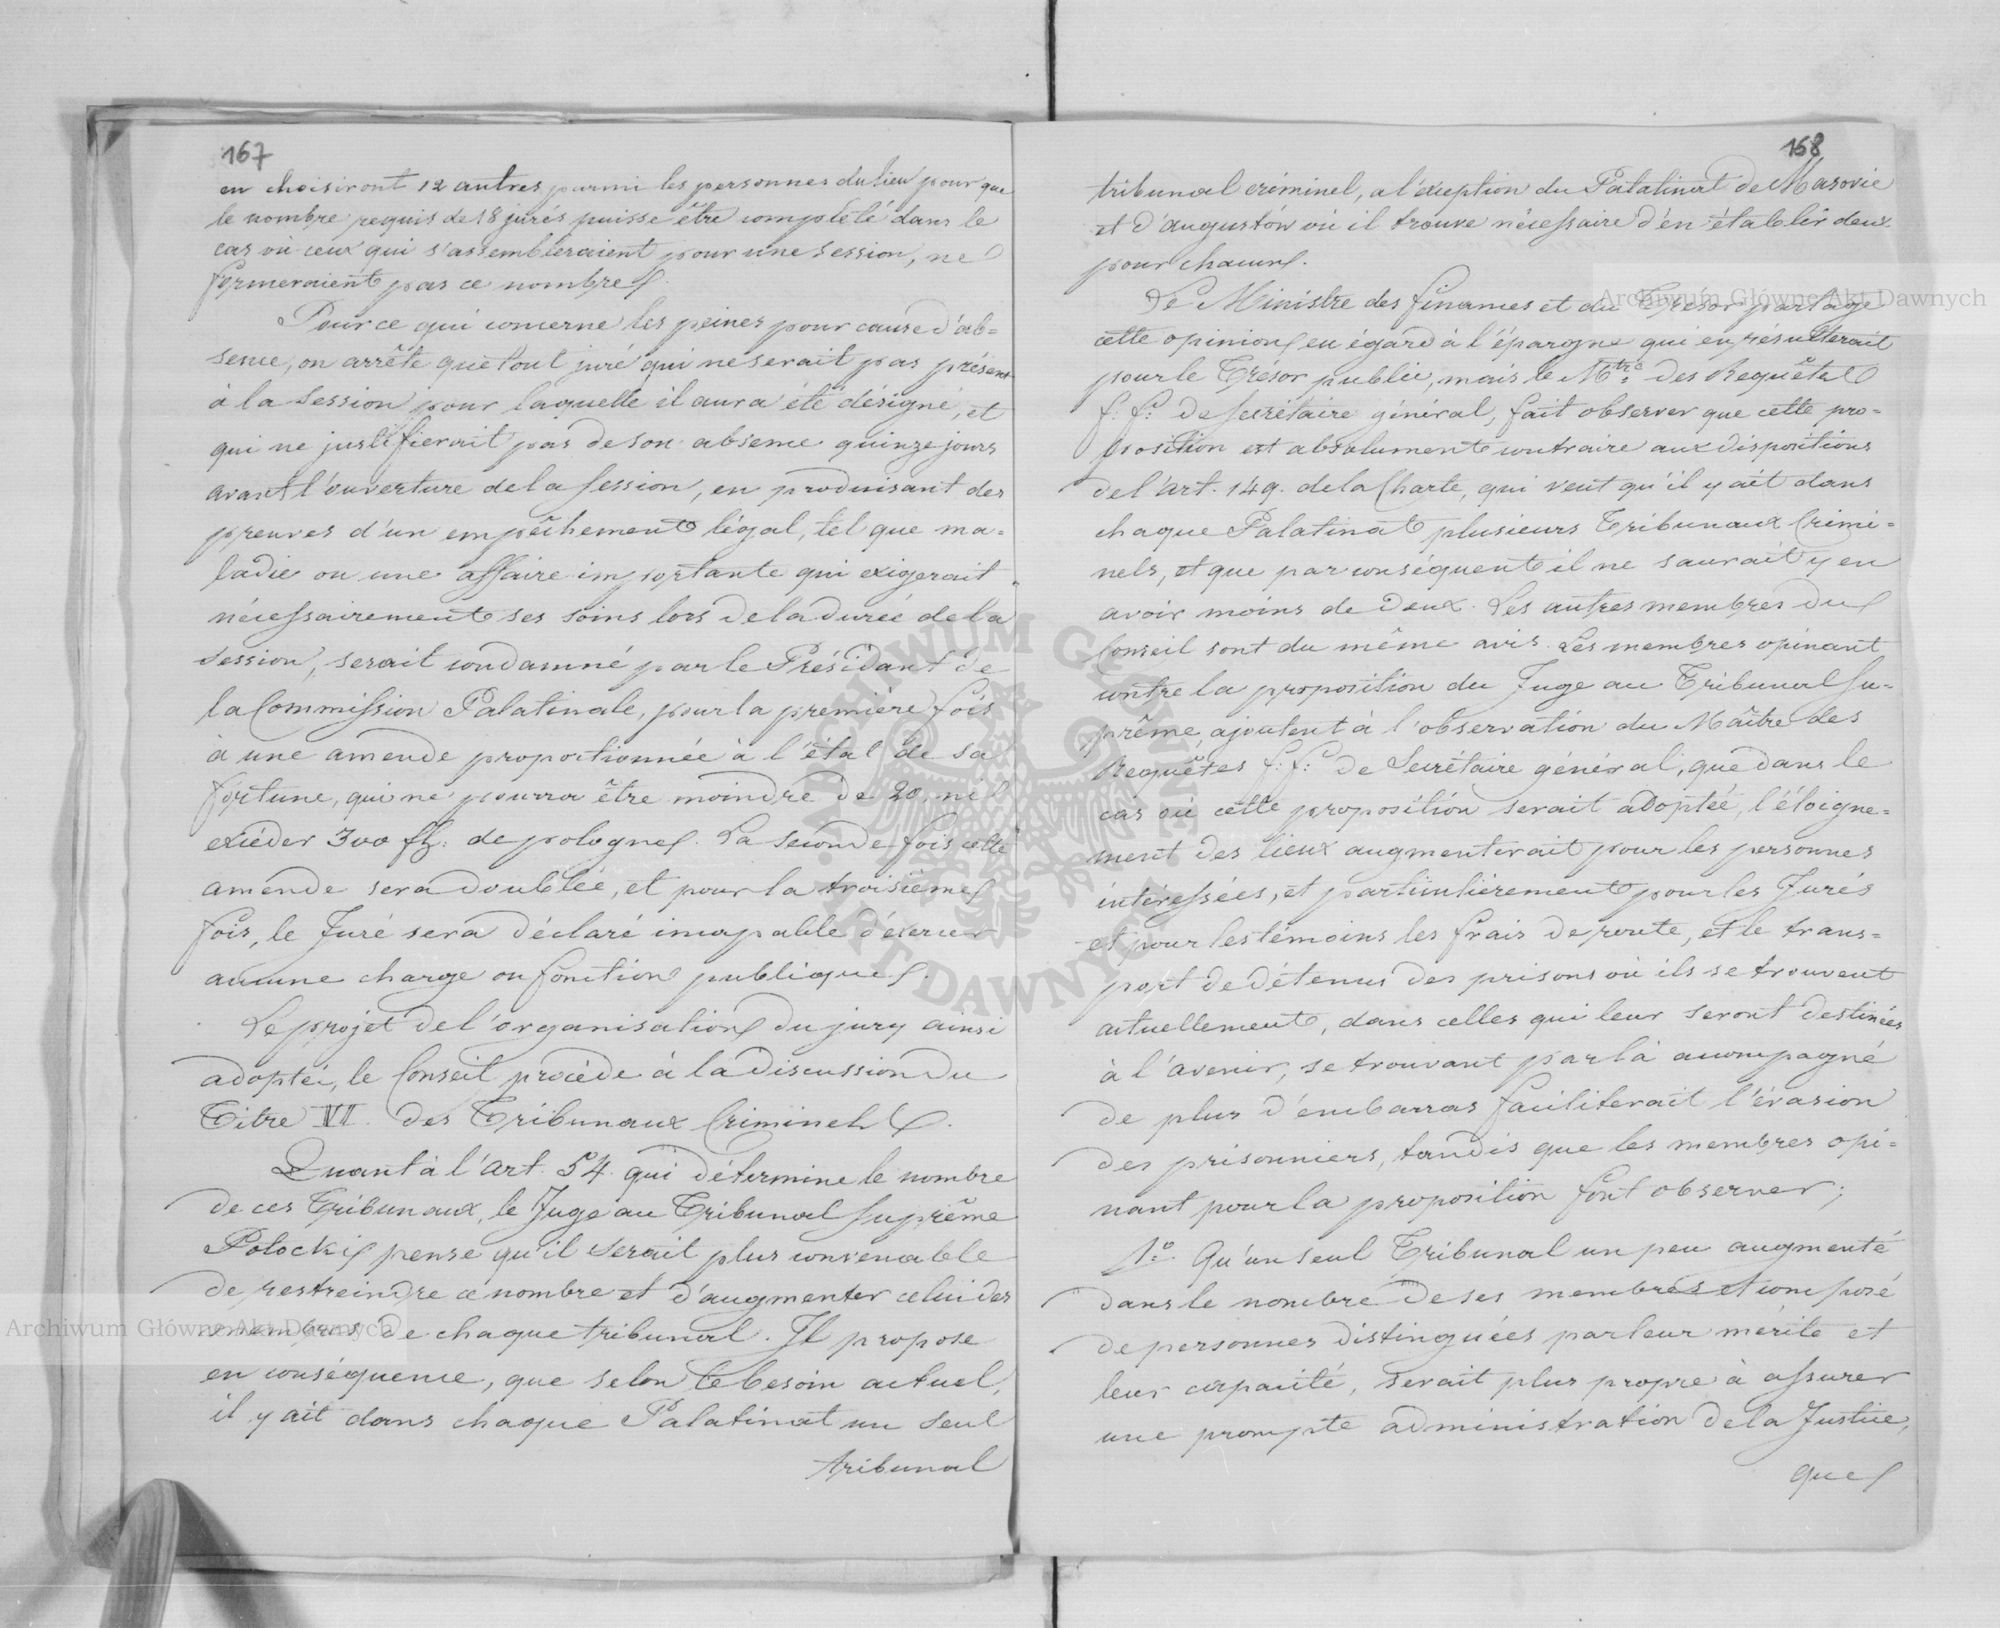 167
en choisiront 12 autres parmi les personnes du lieu pour que
le nombre requis de 18 jurés puisse être complété dans le
cas où ceux qui s'assembleraient pour une session, ne
formeraient pas ce nombre.
Pour ce qui concerne les peines pour cause d'ab=
sence, on arrête que tout juré qui ne serait pas présent
à la Session pour laquelle il aura été désigné, et
qui ne justifierait pas de son absence quinze jours
avant l'ouverture de la session, en produisant des
preuves d'un empêchement légal, tel que ma=
ladie ou une affaire importante qui exigerait
nécessairement ses soins lors de la durée de la
session, serait condamné par le Présidant de
la Commission Palatinale, pour la première fois
à une amende proportionnée à l'état de sa
fortune, qui ne pourra être moindre de 20, ni
excéder 300 fl: de pologne. La seconde fois cette
amende sera doublée, et pour la troisième
fois, le Juré sera déclaré incapable d'exercer
aucune charge ou fonction publique.
Le projet de l'organisation du jury ainsi
adopté, le Conseil procède à la discussion du
Titre VI. des Tribunaux Criminels.
Quant à l'art. 54. qui détermine le nombre
de ces Tribunaux, le Juge au Tribunal Suprême
Potocki pense qu'il serait plus convenable
de restreindre ce nombre et d'augmenter celui des
membres de chaque tribunal. Il propose
en conséquence, que selon le besoin actuel,
il y ait dans chaque Palatinat un seul
tribunal
168
tribunal criminel, a l'exception du Palatinat de Masovie
et d'augustów où il trouve nécessaire d'en établir deux
pour chacun.
Le Ministre des finances et du Trésor partage
cette opinion eu égard à l'épargne qui en résulterait
pour le Trésor public, mais le Mtre des Requêtes
f: f: de Secrétaire général, fait observer que cette pro=
position est absolument contraire aux dispositions
de l'art. 149. de la Charte, qui veut qu'il y ait dans
chaque Palatinat plusieurs Tribunaux Crimi=
nels, et que par conséquent il ne saurait y en
avoir moins de deux. Les autres membres du
Conseil sont du même avis. Les membres opinant
contre la proposition du Juge au Tribunal Su=
prême, ajoutent à l'observation du Maître des
Requêtes f: f: de Secrétaire général, que dans le
cas où cette proposition serait adoptée, l'éloigne=
ment des lieux augmenterait pour les personnes
intéressées, et particulièrement pour les Jurés
et pour les témoins les frais de route, et le trans=
port de détenus des prisons où ils se trouvent
actuellement, dans celles qui leur seront destinées
à l'avenir, se trouvant par là accompagné
de plus d'embarras faciliterait l'évasion
des prisonniers, tandis que les membres opi=
nant pour la proposition font observer;
1.° Qu'un seul Tribunal un peu augmenté
dans le nombre de ses membres et composé
de personnes distinguées par leur mérite et
leur capacité, serait plus propre à assurer
une prompte administration de la Justice,
que
Archiwum Główne Akt Dawnych
Archiwum Główne Akt Dawnych
ARCHIWUM GŁÓWNE AKT DAWNYCH